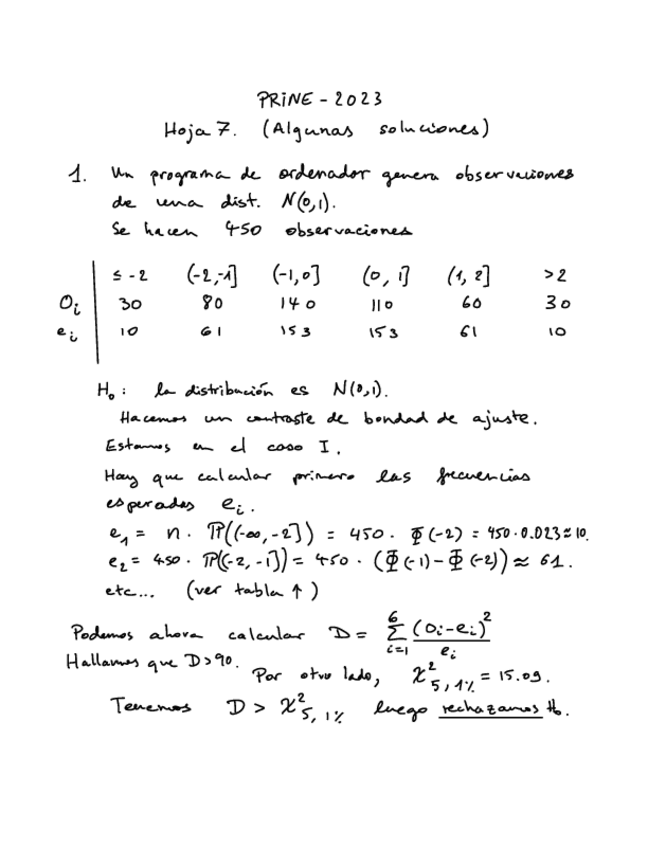 PRINE - 2023
Hoja 7. (Algunas soluciones)
1. Un programa de ordenador genera observaciones
de una dist. N(0,1).
Se hacen 450 observaciones
≤ -2 (-2,-1] (-1,0] (0,1] (1,2] >2
Oi 30 80 140 110 60 30
ei 10 61 153 153 61 10
H₀: la distribución es N(0,1).
Hacemos un contraste de bondad de ajuste.
Estamos en el caso I.
Hay que calcular primero las frecuencias
esperadas ei.
e₁ = n · P((-∞,-2]) = 450 · Φ(-2) = 450·0.023 ≈ 10.
e₂ = 450 · P((-2,-1]) = 450 · (Φ(-1) - Φ(-2)) ≈ 61.
etc... (ver tabla ↑)
Podemos ahora calcular D = Σ_{i=1}^{6} (Oi-ei)²/ei
Hallamos que D>90. Por otro lado, χ²_{5,1%} = 15.09.
Tenemos D > χ²_{5,1%} luego rechazamos H₀.